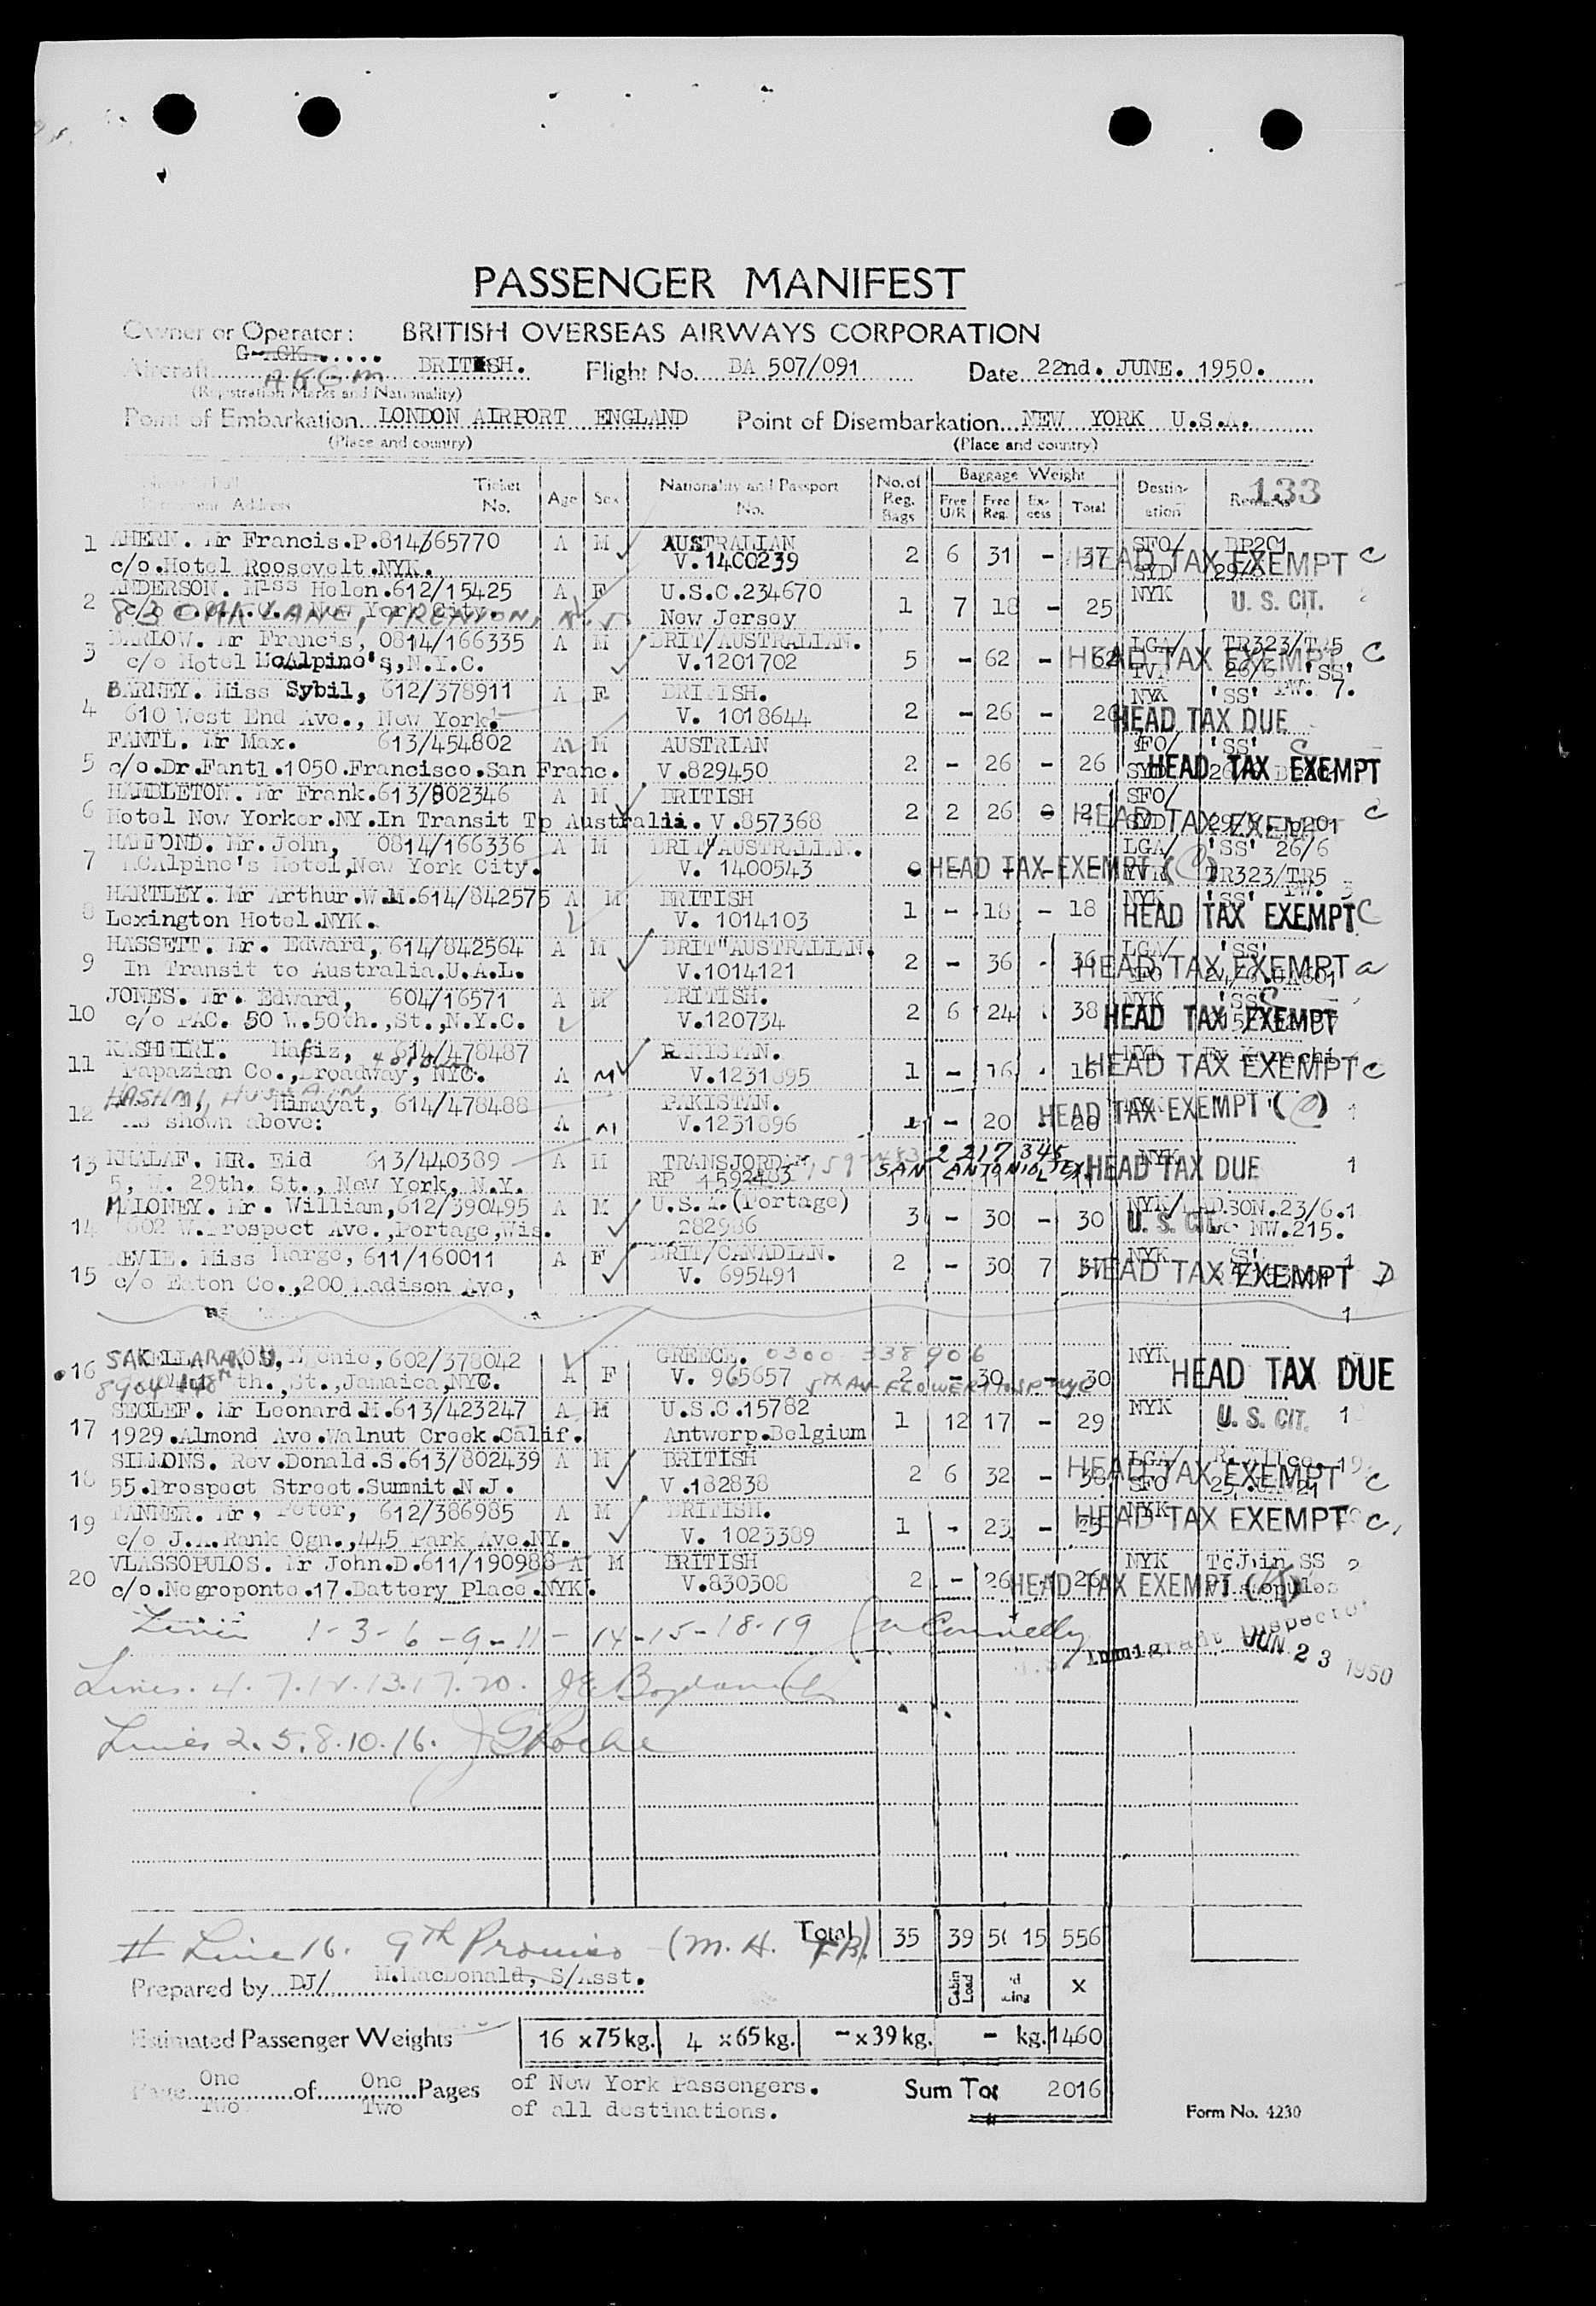 PASSENGER MANIFEST
Owner or Operator: BRITISH OVERSEAS AIRWAYS CORPORATION
Aircraft AKGM BRITISH. Flight No. BA 507/091 Date 22nd. JUNE. 1950.
(Registration Marks and Nationality)
Point of Embarkation LONDON AIRPORT ENGLAND Point of Disembarkation NEW YORK U.S.A.
(Place and country) (Place and country)
Ticket No. Age Sex Nationality and Passport No. No. of Reg. Bags Baggage Weight Free U/R Free Reg. Ex-cess Total Destin-ation Remarks 133
1 AHERN. Mr Francis.P.814/365770 A M AUSTRALIAN 2 6 31 - 37 SFO/ BP201
c/o.Hotel Roosevelt.NYK. V.1400239 SYD HEAD TAX EXEMPT C
2 ANDERSON. Miss Helen.612/15425 A F U.S.C.234670 1 7 18 - 25 NYK U. S. CIT.
New York City. New Jersey
3 BARLOW. Mr Francis, 0814/166335 A M BRIT/AUSTRALIAN. 5 - 62 - 62 LGA/ TR323/TR5
c/o Hotel McAlpine's, N.Y.C. V.1201702 HEAD TAX EXEMPT C 26/6 'SS'
4 BARNEY. Miss Sybil, 612/378911 A F BRITISH. 2 - 26 - 26 NYK 'SS' PW. 7.
610 West End Ave., New York. V. 1018644 HEAD TAX DUE
5 FANTL. Mr Max. 613/454802 A M AUSTRIAN 2 - 26 - 26 SFO/ 'SS' C
c/o.Dr.Fantl.1050.Francisco.San Franc. V.829450 SYD HEAD TAX EXEMPT
6 HAMBLETON. Mr Frank.613/802346 A M BRITISH 2 2 26 - SFO/
Hotel New Yorker.NY.In Transit To Australia. V.857368 HEAD TAX EXEMPT C
7 HAMMOND. Mr. John, 0814/166336 A M BRIT/AUSTRALIAN. LGA/ 'SS' 26/6
McAlpine's Hotel,New York City. V. 1400543 HEAD TAX EXEMPT (C) YVR TR323/TR5
8 HARTLEY. Mr Arthur.W.M.614/842575 A M BRITISH 1 - 18 - 18 NYK 'SS' PW. 3
Lexington Hotel.NYK. V. 1014103 HEAD TAX EXEMPT C
9 HASSETT. Mr. Edward, 614/842564 A M BRIT"AUSTRALIAN. 2 - 36 - 36 LGA/ 'SS'
In Transit to Australia.U.A.L. V.1014121 SFO HEAD TAX EXEMPT
10 JONES. Mr. Edward, 604/16571 A M BRITISH. 2 6 24 38 NYK 'SS'
c/o PAC. 50 W.50th.,St.,N.Y.C. V.120734 HEAD TAX EXEMPT
11 KASHMIRI. Hafiz, 614/478487 PAKISTAN. 1 - 16 16 NYK
Papazian Co.,Broadway, NYC. A M V.1231895 HEAD TAX EXEMPT C
12 HASHMI, HUSSAIN Himayat, 614/478488 PAKISTAN. 1 - 20 - 20
As shown above: A M V.1231896 HEAD TAX EXEMPT (C) 1
13 KHALAF. MR. Eid 613/440389 A M TRANSJORDAN 2 217 345 NYK
5, W. 29th. St., New York, N.Y. RP 1592483 SAN ANTONIO, TEX. HEAD TAX DUE 1
14 MALONEY. Mr. William,612/390495 A M U.S.A.(Portage) 3 - 30 - 30 NYK/MADISON.23/6.
602 W.Prospect Ave.,Portage,Wis. 282986 U. S. CIT. NW.215.
15 REVIE. Miss Marge, 611/160011 A F BRIT/CANADIAN. 2 - 30 7 37 NYK
c/o Eaton Co.,200 Madison Ave, V. 695491 HEAD TAX EXEMPT D
1
16 SAKELLARAKOU, 602/378042 GREECE. 0300 338906 NYK HEAD TAX DUE
8904 148th.,St.,Jamaica,NYC. A F V. 965657 2 - 30 - 30
5TH AV FLOWER HOSP NYC
17 SECLEF. Mr Leonard.M.613/423247 A M U.S.C.15782 1 12 17 - 29 NYK U. S. CIT.
1929.Almond Ave.Walnut Creek.Calif. Antwerp.Belgium
18 SIMMONS. Rev.Donald.S.613/802439 A M BRITISH 2 6 32 - 38 LGA/
55.Prospect Street.Summit.N.J. V.182838 SFO HEAD TAX EXEMPT C
19 TANNER. Mr, Peter, 612/386985 A M BRITISH. 1 - 23 - 23 NYK
c/o J.A.Rank Ogn.,445 Park Ave.NY. V. 1023389 HEAD TAX EXEMPT C
20 VLASSOPULOS. Mr John.D.611/190988 A M BRITISH 2 - 26 26 NYK To Join SS
c/o.Negroponte.17.Battery Place.NYK. V.830308 HEAD TAX EXEMPT Vlassopulos
Lines 1-3-6-9-11-14-15-18-19 Connelly
Immigrant Inspector JUN 23 1950
Lines. 4.7.12.13.17.20.
Lines 2.5.8.10.16. JG Roche
Total 35 39 15 556
# Line 16. 9th Proviso (M.H. FB)
Prepared by DJ/ M.MacDonald, S/Asst. Cabin Load X
Estimated Passenger Weights 16 x75kg. 4 x65kg. - x39kg. - kg. 1460
Page One of One Pages of New York Passengers. Sum Tot 2016
Two Two of all destinations.
Form No. 4230